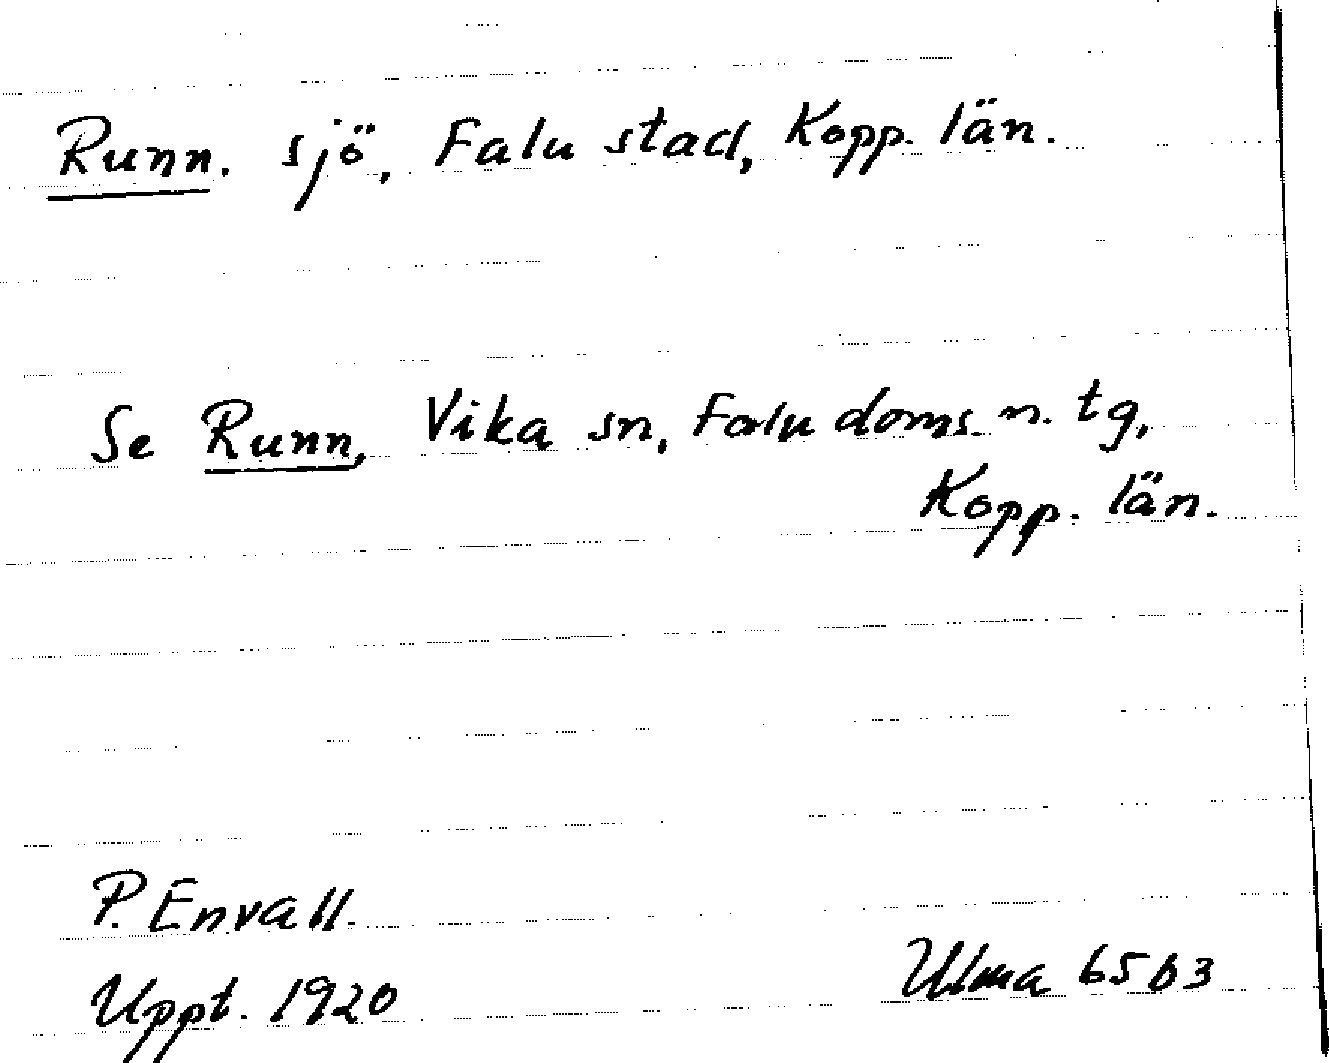 Runn. sjö, Falu stad, Kopp. län.
Se Runn, Vika sn, Falu doms. n. tg,
Kopp. län.
P. Envall.
Uppt. 1920
Ulma 6563